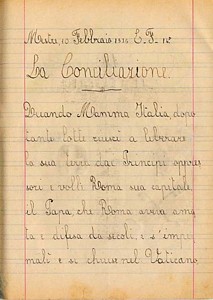 10 Febbraio E. F.
La Conciliazione.
Quando Mamma Italia, dopo
tante lotte riuscì a liberare
la sua terra dai Principi oppres
sori e volle Roma sua capitale,
il Papa, che Roma aveva ama
ta e difesa da secoli,
e si chiuse nel Vaticano